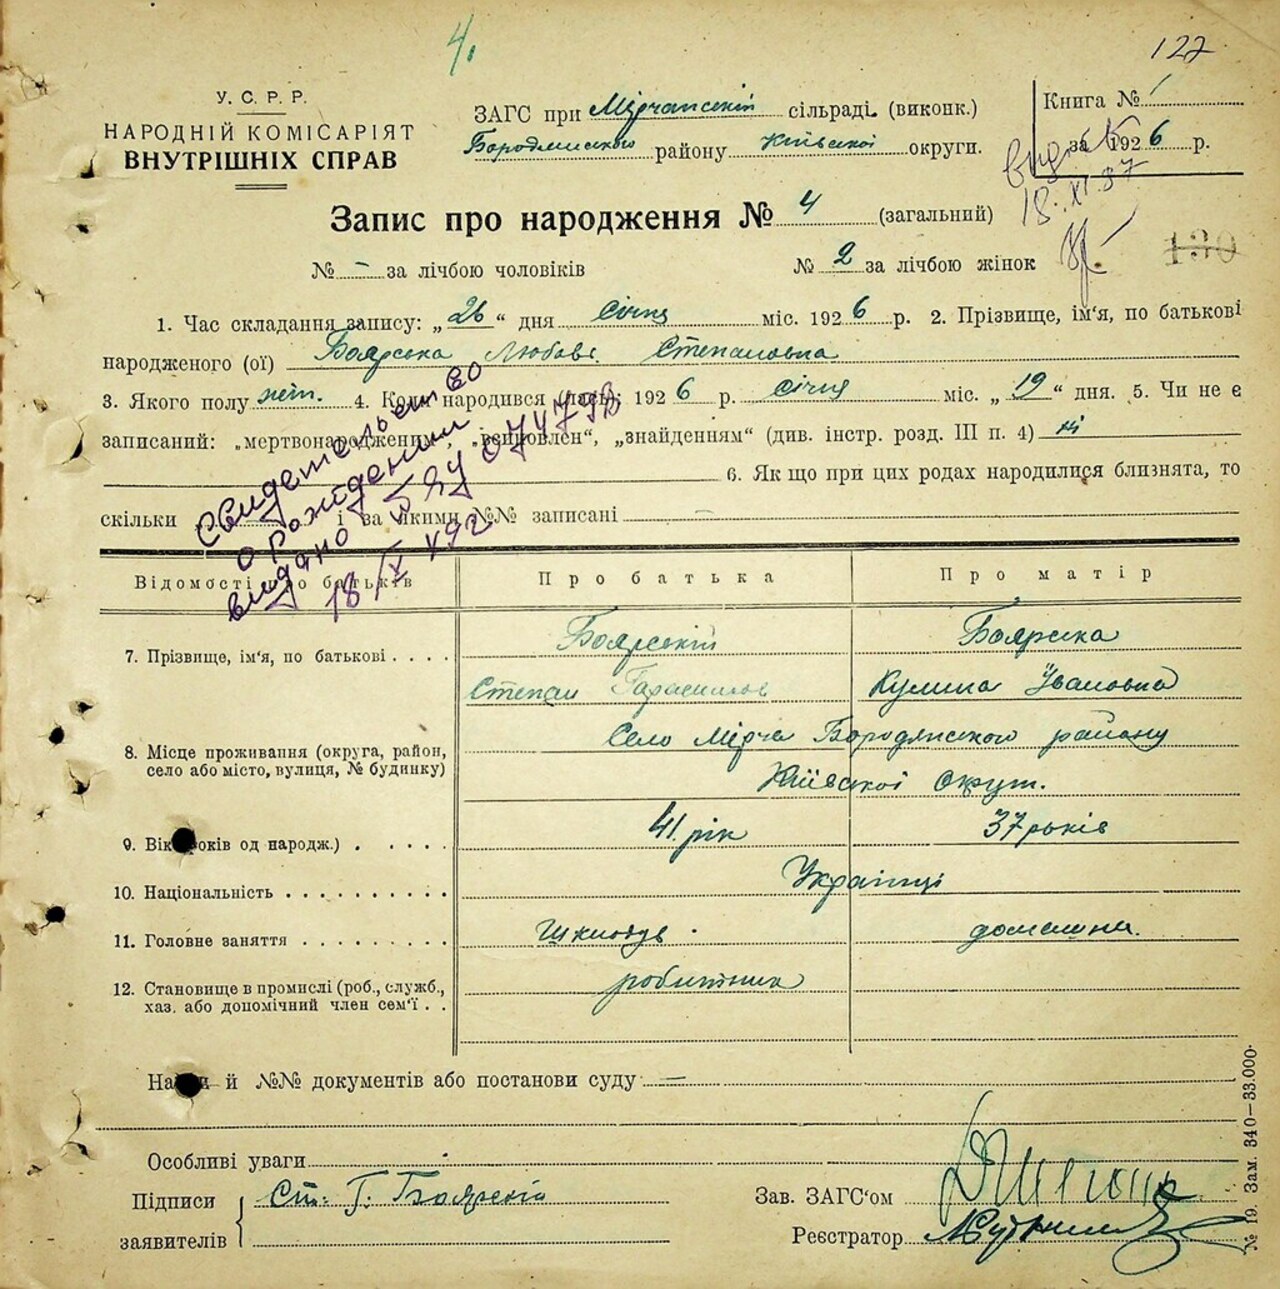 4.
127
У. С. Р. Р.
НАРОДНІЙ КОМІСАРІЯТ
ВНУТРІШНІХ СПРАВ
ЗАГС при Мірчанській сільраді (виконк.)
Бородянського району Київської округи.
Книга № 1
за 1926 р.
18.XI.37
Запис про народження № 4 (загальний)
130
№ – за лічбою чоловіків № 2 за лічбою жінок
1. Час складання запису: „26“ дня Січня міс. 1926 р. 2. Прізвище, ім'я, по батькові
народженого (ої) Боярська Любовь Степановна
3. Якого полу жін. 4. Коли народився (лась): 1926 р. січня міс. „19“ дня. 5. Чи не є
записаний: „мертвонародженим“, „всиновлен“, „знайденням“ (див. інстр. розд. III п. 4) ні
6. Як що при цих родах народилися близнята, то
скільки і за якими №№ записані –
Свидетельство
о рождении
выдано
Відомості про батьків Про батька Про матір
7. Прізвище, ім'я, по батькові . . . . Боярській Боярська
Степан Гарасимов Кулина Івановна
8. Місце проживання (округа, район,
село або місто, вулиця, № будинку) Село Мірча Бородянського району
Київської Округ.
9. Вік років од народж.) . . . . . 41. рік 37 років
10. Національність . . . . . . . . . . Українці
11. Головне заняття . . . . . . . . . домашна.
12. Становище в промислі (роб., служб.,
хаз. або допомічний член сем'ї . . робитник
й №№ документів або постанови суду –
Особливі уваги
Підписи
заявителів Ст. Г. Боярскій
Зав. ЗАГС'ом
Реєстратор
№ 19. Зам. 340—33.000.